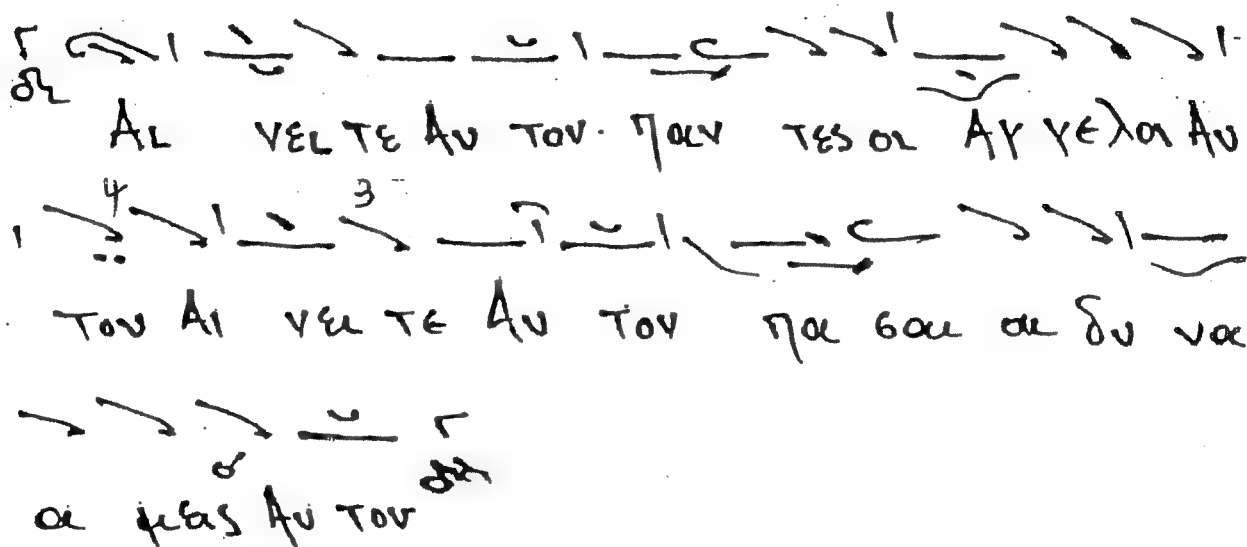 Γ
δι
Αι νει τε Αυ τον. παν τες οι Αγ γε λοι Αυ
4 3
του Αι νει τε Αυ τον πα σαι αι δυ να
Γ
αι μεις Αυ του